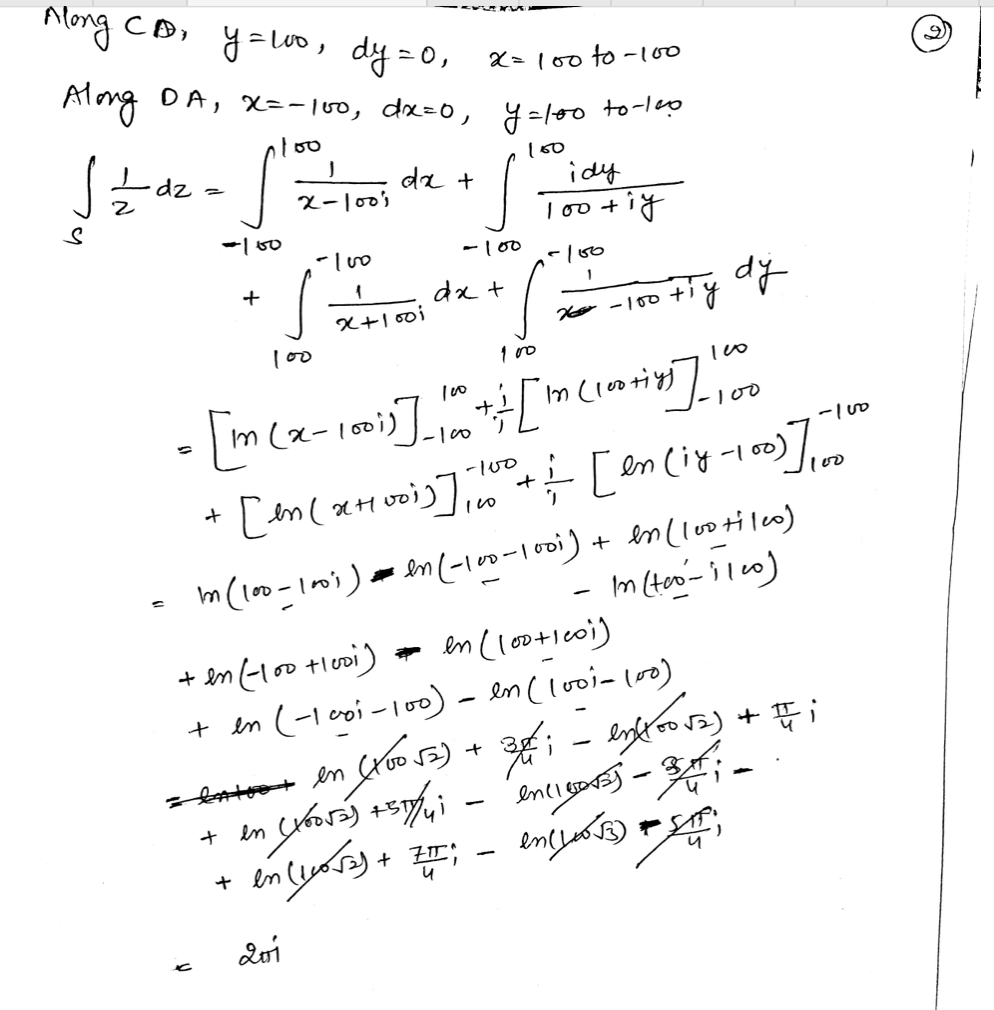 Along CD, y=100, dy=0, x=100 to -100
②
Along DA, x=-100, dx=0, y=100 to -100
∫_S 1/z dz = ∫_{-100}^{100} 1/(x-100i) dx + ∫_{-100}^{100} idy/(100+iy)
+ ∫_{100}^{-100} 1/(x+100i) dx + ∫_{100}^{-100} 1/(-100+iy) dy
= [ln(x-100i)]_{-100}^{100} + i/i [ln(100+iy)]_{-100}^{100}
+ [ln(x+100i)]_{100}^{-100} + i/i [ln(iy-100)]_{100}^{-100}
= ln(100-100i) - ln(-100-100i) + ln(100+i100)
- ln(100-i100)
+ ln(-100+100i) - ln(100+100i)
+ ln(-100i-100) - ln(100i-100)
= ln(100√2) + 3π/4 i - ln(100√2) + π/4 i
+ ln(100√2) + 5π/4 i - ln(100√3) - 3π/4 i -
+ ln(100√2) + 7π/4 i - ln(100√3) - 5π/4 i
= 2πi